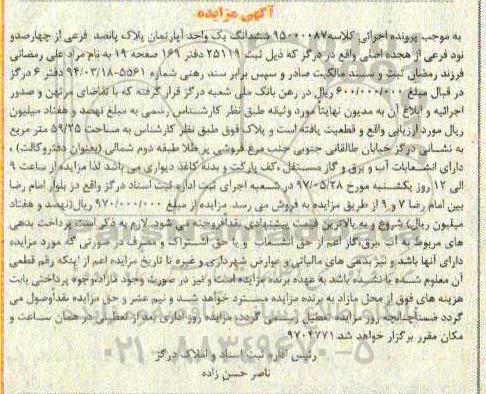 آگهی مزایده
به موجب پرونده اجرائی کلاسه ۹۵۰۰۰۸۷ ششدانگ یک واحد آپارتمان پلاک پانصد فرعی از چهارصدو
نود فرعی از هجده اصلی واقع در درگز که ذیل ثبت ۲۵۱۱۹ دفتر ۱۶۹ صفحه ۱۹ به نام مراد علی رمضانی
فرزند رمضان ثبت و سند مالکیت صادر و سپس برابر سند رهنی شماره ۵۵۶۱-۹۴/۰۳/۱۸ دفتر ۶ درگز
در قبال مبلغ ۶۰۰/۰۰۰/۰۰۰ ریال در رهن بانک ملی شعبه درگز قرار گرفته که با تقاضای مرتهن و صدور
اجرائیه و ابلاغ آن به مدیون نهایتا مورد وثیقه طبق نظر کارشناس رسمی به مبلغ نهصد و هفتاد میلیون
ریال مورد ارزیابی واقع و قطعیت یافته است و پلاک فوق طبق نظر کارشناس به مساحت ۵۹/۲۵ متر مربع
به نشانی درگز خیابان طالقانی جنوبی جنب مرغ فروشی پر طلا طبقه دوم شمالی (بعنوان دفتروکالت) ،
دارای انشعابات آب و برق و گاز مستقل ،کف پارکت و بدنه کاغذ دیواری می باشد لذا مزایده از ساعت ۹
الی ۱۲ روز یکشنبه مورخ ۹۷/۰۵/۲۸ در شعبه اجرای ثبت اداره ثبت اسناد درگز واقع در بلوار امام رضا
بین امام رضا ۷ و ۹ از طریق مزایده به فروش می رسد. مزایده از مبلغ ۹۷۰/۰۰۰/۰۰۰ ریال(نهصد و هفتاد
میلیون ریال) شروع و به بالاترین قیمت پیشنهادی نقدا فروخته می شود. لازم به ذکر است پرداخت بدهی
های مربوط به آب ،برق،گاز اعم از حق انشعاب و یا حق اشتراک و مصرف در صورتی که مورد مزایده
دارای آنها باشد و نیز بدهی های مالیاتی و عوارض شهرداری و غیره تا تاریخ مزایده اعم از اینکه رقم قطعی
آن معلوم شده یا نشده باشد به عهده برنده مزایده است و نیز در صورت وجود مازاد،وجوه پرداختی بابت
هزینه های فوق از محل مازاد به برنده مزایده مسترد خواهد شد و نیم عشر و حق مزایده نقدا وصول می
گردد ضمنا چنانچه روز مزایده تعطیل رسمی گردد، مزایده روز اداری بعد از تعطیلی در همان ساعت و
مکان مقرر برگزار خواهد شد ۹۷۰۴۷۷۱
رئیس اداره ثبت اسناد و املاک درگز
ناصر حسن زاده
۰۲۱-۸۸۳۴۹۶۷۰-۵